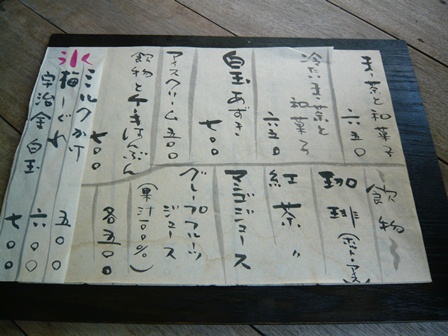 まっ茶と和菓子
六五〇
冷たいまっ茶と
和菓子
六五〇
白玉あずき
七〇〇
アイスクリーム 五〇〇
飲物と
はんぶん
七〇〇
飲物
珈琲(ホット・アイス)
紅茶 〃
りんごジュース
グレープフルーツ
ジュース
(果汁100%)
各五〇〇
氷
ミルクかけ
梅しぐれ 五〇〇
宇治金 六〇〇
白玉 七〇〇